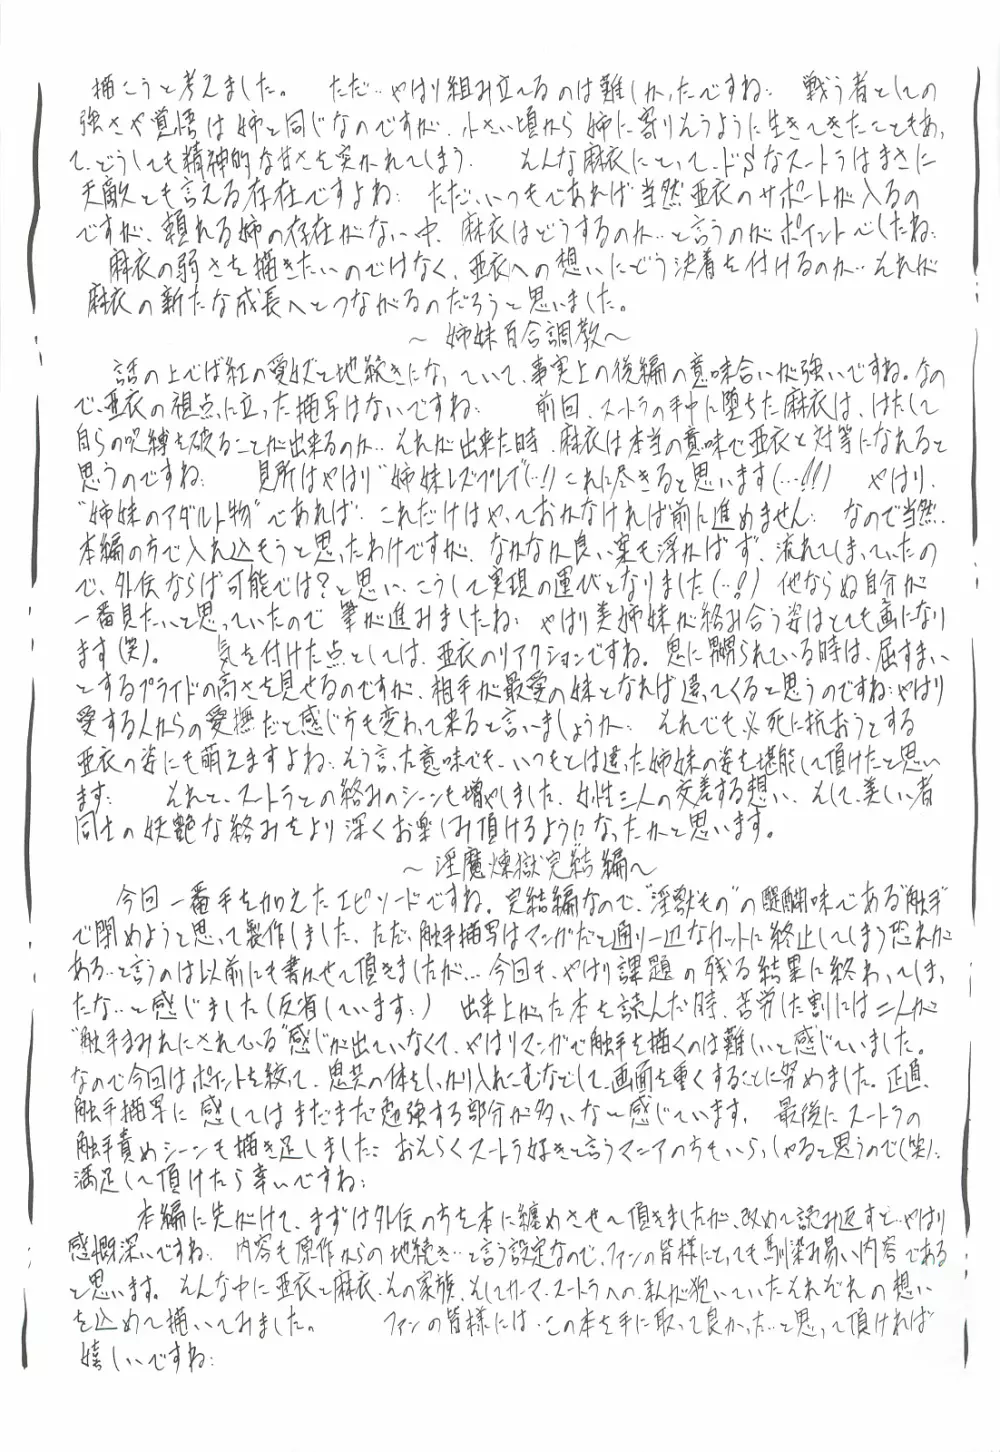 描こうと考えました。 ただ…やはり組み立てるのは難しかったですね… 戦う者としての
強さや覚悟は姉と同じなのですが、小さい頃から姉に寄りそうように生きてきたこともあっ
て、どうしても精神的な甘さを突かれてしまう… そんな麻衣にとって、ドSなスートラはまさに
天敵とも言える存在ですよね… ただ、いつもであれば当然亜衣のサポートが入るの
ですが、頼れる姉の存在がない中、麻衣はどうするのか…と言うのがポイントでしたね…
麻衣の弱さを描きたいのではなく、亜衣への想いにどう決着を付けるのか…それが
麻衣の新たな成長へとつながるのだろうと思いました。
～姉妹百合調教～
話の上では紅の愛奴と地続きになっていて、事実上の後編の意味合いが強いですね。なの
で、亜衣の視点に立った描写はないですね… 前回、スートラの手中に堕ちた麻衣は、はたして
自らの呪縛を破ることが出来るのか…それが出来た時、麻衣は本当の意味で亜衣と対等になれると
思うのですね… 見所はやはり"姉妹レズプレイ"(…!)これに尽きると思います(…!!) やはり、
"姉妹のアダルト物"であれば、これだけはやっておかなければ前に進めません… なので当然、
本編の方で入れ込もうと思ったわけですが、なかなか良い案も浮かばず、流れてしまっていたの
で、外伝ならば可能では?と思い、こうして実現の運びとなりました(…!) 他ならぬ自分が
一番見たいと思っていたので筆が進みましたね… やはり美姉妹が絡み合う姿はとても画になり
ます(笑)。 気を付けた点としては、亜衣のリアクションですね。鬼に嬲られている時は、屈すまい
とするプライドの高さを見せるのですが、相手が最愛の妹となれば違ってくると思うのですね…やはり
愛する人からの愛撫だと感じ方も変わって来ると言いましょうか… それでも必死に抗おうとする
亜衣の姿にも萌えますよね…そう言った意味でも、いつもとは違った姉妹の姿を堪能して頂けたと思い
ます… それと、スートラとの絡みのシーンも増やしました。女性三人の交差する想い、そして、美しい者
同士の妖艶な絡みをより深くお楽しみ頂けるようになったかと思います。
～淫魔煉獄完結編～
今回一番手を加えたエピソードですね。完結編なので、"淫獣もの"の醍醐味である"触手"
で閉めようと思って製作しました。ただ、触手描写はマンガだと通り一辺なカットに終止してしまう恐れが
ある…と言うのは以前にも書かせて頂きましたが…今回も、やはり課題の残る結果に終わってしまっ
たな…と感じました(反省しています…) 出来上がった本を読んだ時、苦労した割には二人が
"触手まみれにされている"感じが出ていなくて、やはりマンガで触手を描くのは難しいと感じていました。
なので今回はポイントを絞って、鬼共の体をしっかり入れこむなどして、画面を重くすることに努めました。正直、
触手描写に感してはまだまだ勉強する部分が多いな～感じています。 最後にスートラの
触手責めシーンも描き足しました…おそらくスートラ好きと言うマニアの方もいらっしゃると思うので(笑)…
満足して頂けたら幸いですね…
本編に先がけて、まずは外伝の方を本に纏めさせて頂きましたが、改めて読み返すと…やはり
感慨深いですね… 内容も原作からの地続き…と言う設定なので、ファンの皆様にとっても馴染み易い内容である
と思います。そんな中に亜衣と麻衣、その家族、そしてカーマ、スートラへの、私が抱いていたそれぞれの想い
を込めて描いてみました。 ファンの皆様には、この本を手に取って良かった…と思って頂ければ
嬉しいですね…